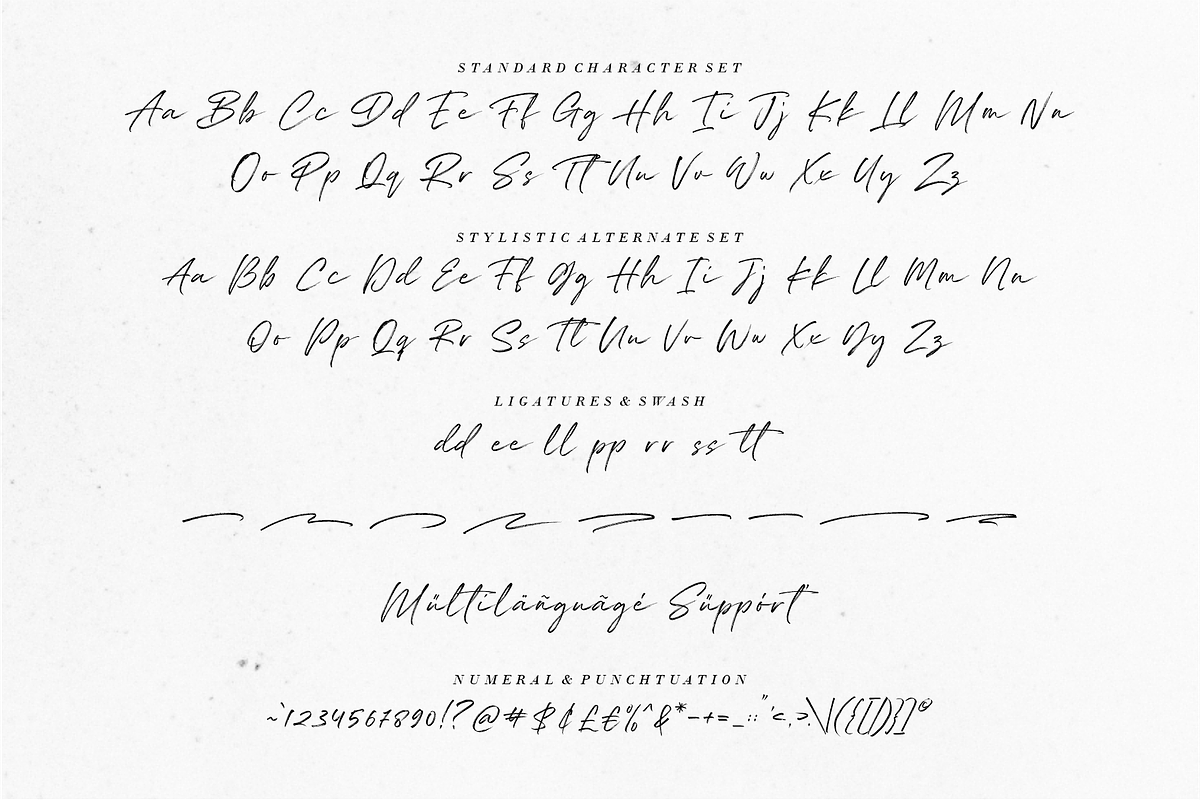 STANDARD CHARACTER SET
Aa Bb Cc Dd Ee Ff Gg Hh Ii Jj Kk Ll Mm Nn
Oo Pp Qq Rr Ss Tt Uu Vv Ww Xx Yy Zz
STYLISTIC ALTERNATE SET
Aa Bb Cc Dd Ee Ff Gg Hh Ii Jj Kk Ll Mm Nn
Oo Pp Qq Rr Ss Tt Uu Vv Ww Xx Yy Zz
LIGATURES & SWASH
dd ee ll pp rr ss tt
Mültiläñguãgé Süppórt
NUMERAL & PUNCHTUATION
~`1234567890!?@#$¢£€%^&*-+=_:;"'<,>.\|({[])}]©